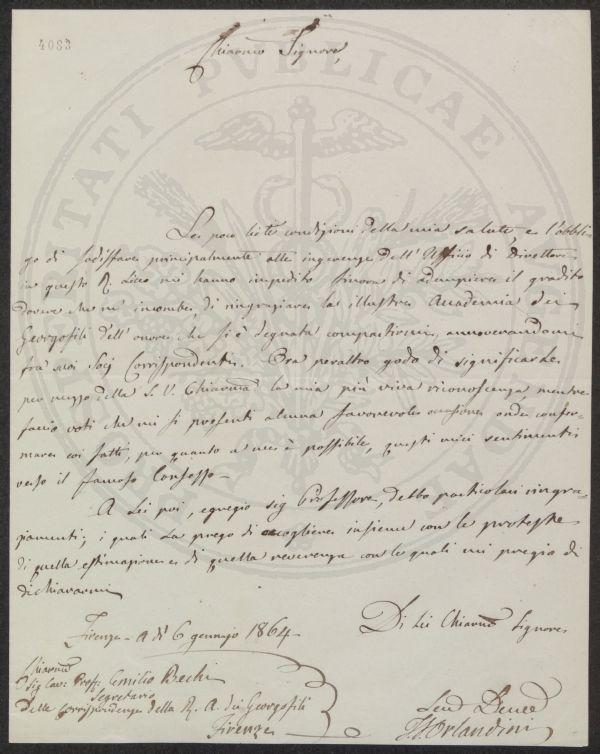 4083
Chiarmo Signore,
Le poco liete condizioni della mia salute, e l'obbli-
go di sodisfare principalmente alle ingerenze dell'Uffizio di Direttore
in questo R. Liceo mi hanno impedito finora di adempiere il gradito
dovere che m'incombe, di ringraziare la illustre Accademia dei
Georgofili dell'onore che si è degnata compartirmi, annoverandomi
fra suoi Socj Corrispondenti. Ora peraltro godo di significarle
per mezzo della S. V. Chiarma la mia più viva riconoscenza, mentre
faccio voti che mi si presenti alcuna favorevole occasione onde confer-
mare coi fatti, per quanto a me è possibile, questi miei sentimenti
verso il famoso Consesso.
A Lei poi, egregio Sig Professore, debbo particolari ringra-
ziamenti; i quali La prego di accogliere insieme con le proteste
di quella estimazione e di quella reverenza con le quali mi pregio di
dichiararmi
Di Lei Chiarmo Signore
Firenze - a dì 6 gennajo 1864 -
Chiarmo
Sig Cav: Proff: Emilio Bechi
Segretario
delle Corrispondenze della R. A. dei Georgofili
Firenze
Orlandini
PVBLICAE